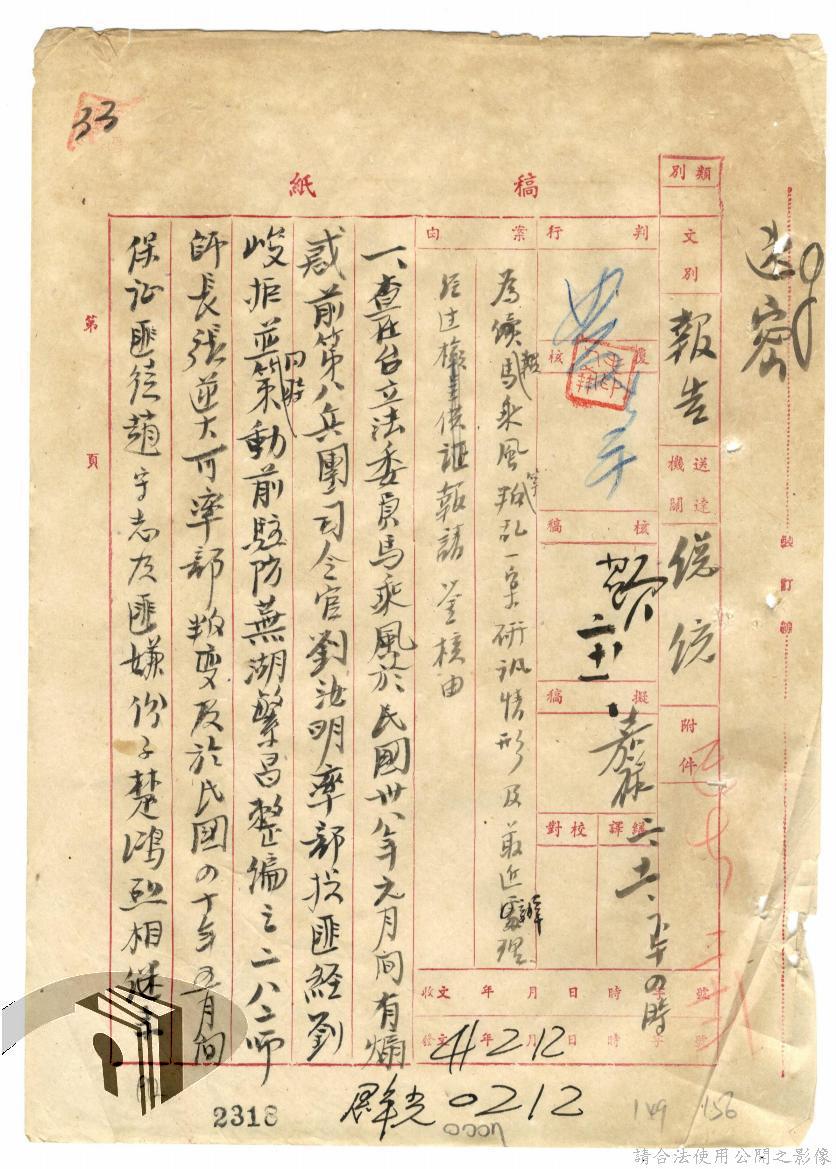 33
紙 稿
速
密
裝訂線
類別
文別
報告
送達機關
總統
附件
判行
覆核
核稿
擬稿
繕譯
校對
六
午四時
案由
為續報馬乘風等叛乱一案研訊情形及最近處理
經過檢呈供証報請鑒核由
收文 年 月 日 時 字 號
發文 年 月 日 時 字 號
一、查在台立法委員馬乘風於民國卅八年元月間有煽
惑前第八兵團司令官劉汝明率部投匪經劉
峻拒並策動前駐防蕪湖繁昌整編之二八二師
師長張逆大可率部叛變及於民國四十年五月間
保証匪徒趙守志及匪嫌份子楚鴻烈相繼
第 頁
41212
0212
2318
149 156
請合法使用公開之影像